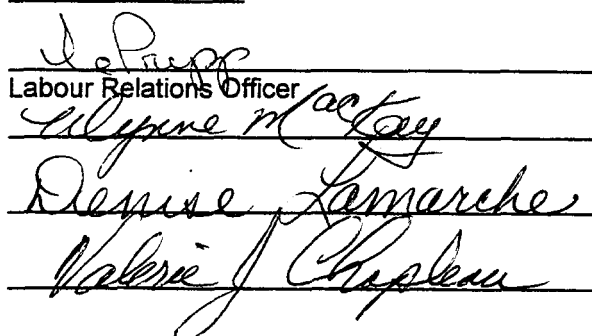 Labour Relations Officer
MacKay
Denise Lamarche
Valerie J Chapleau